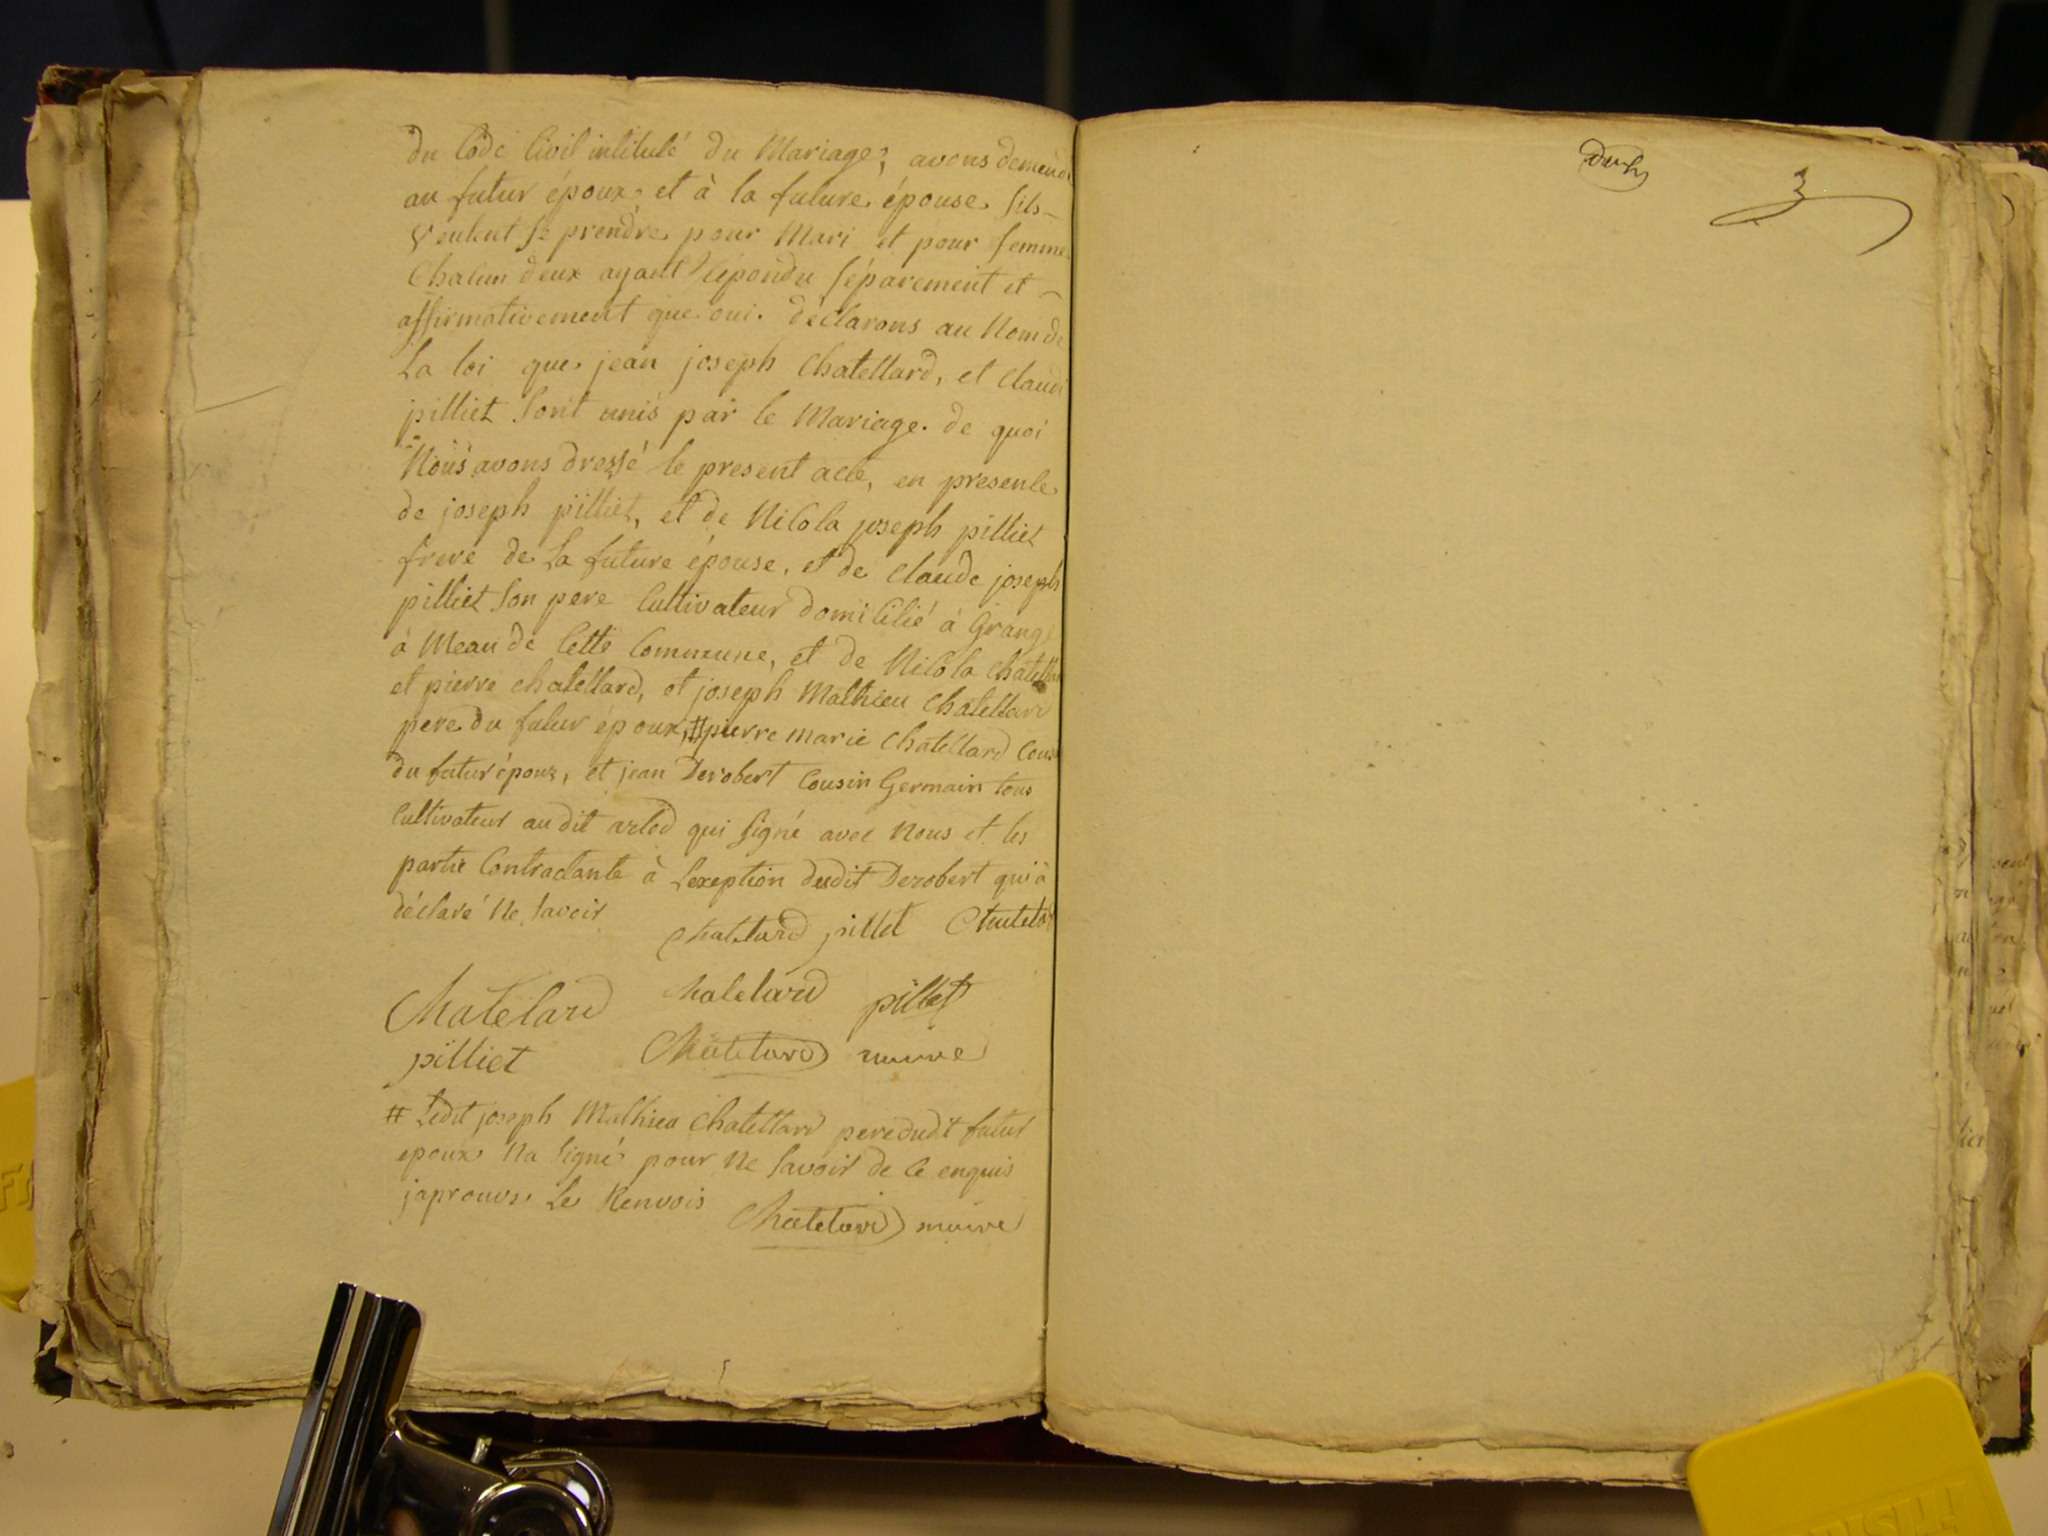 du Code Civil intitulé du Mariage, avons demendé
au futur époux, et à la future épouse sils
veulent se prendre pour Mari et pour femme
Chacun deux ayant répondu séparement et
affirmativement que oui. déclarons au Nom de
La loi que jean joseph Chatellard, et Claudi
pilliet sont unis par le Mariage. de quoi
Nous avons dressé le present acte, en presence
de joseph pilliet, et de Nicola joseph pilliet
frere de La future épouse, et de Claude joseph
pilliet son pere Cultivateur domicilié à Grange
à Meau de Cette Commune, et de Nicola Chatellard
et pierre chatellard, et joseph Mathieu Chatellard
pere du futur époux, # pierre marie Chatellard Cousin
du futur époux, et jean Derobert Cousin Germain tous
Cultivateur au dit arlod qui signé avec Nous et les
partie Contractante à Lexeption dudit Derobert qui a
déclaré Ne savoir
Chatelard pillet Chatelard
Chatelard Chatelard pillet
pilliet Chatelard maire
# Ledit joseph Mathieu Chatellard pere dudit futur
epoux Na signé pour Ne savoir de Ce enquis
japrouve Le Renvois
Chatelard maire